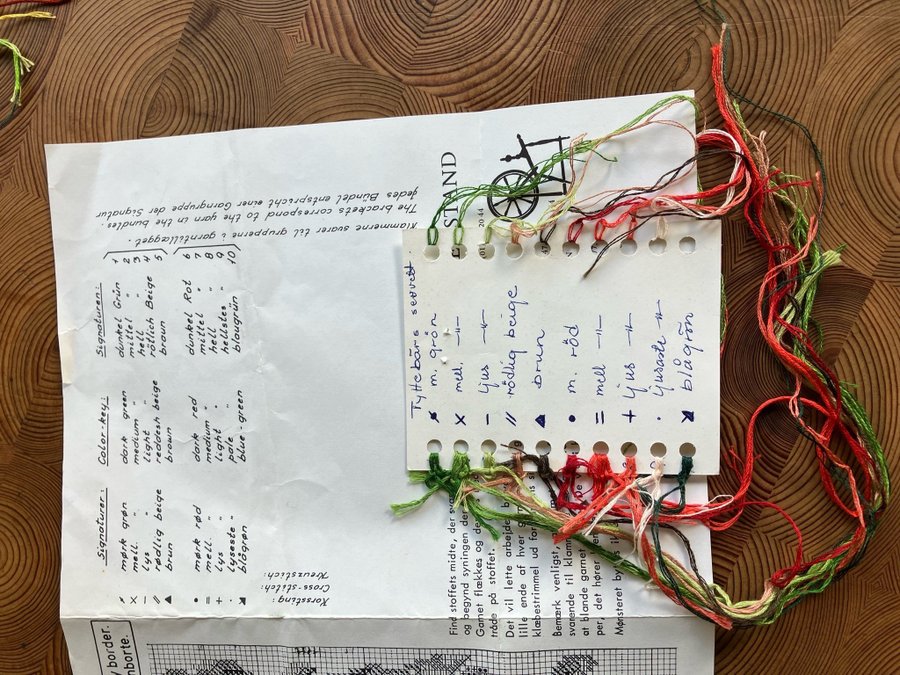 y border.
nborte.
Korssting:
Cross-stitch:
Kreuzstich:
Signaturer:
mørk grøn
mell. "
lys "
rødlig beige
brun
mørk rød
mell. "
lys "
lyseste "
blågrøn
Color-key:
dark green
medium "
light "
reddesh beige
brown
dark red
medium "
light "
pale "
blue-green
Signaturen:
dunkel Grün 1
mittel " 2
hell " 3
rötlich Beige 4
braun 5
dunkel Rot 6
mittel " 7
hell " 8
hellstes " 9
blaugrün 10
Klammerne svarer til grupperne i garntillægget.
The brackets correspond to the yarn in the bundles.
Jedes Bündel entspricht einer Garngruppe der Signatur
STAND
Find stoffets midte, der
og begynd syningen
Garnet flækkes og de
tråde på stoffet.
Det vil lette arbejdet
lille ende af hver
klæbestrimmel ud for
Bemærk venligst,
svarende til
at blande garnet
per, det hører
Mønsteret
Tyttebärs servett.
m. grön
x mell. -"-
- ljus -"-
// rödlig beige
brun
• m. röd
= mell -"-
+ ljus -"-
· ljusaste -"-
blågrön